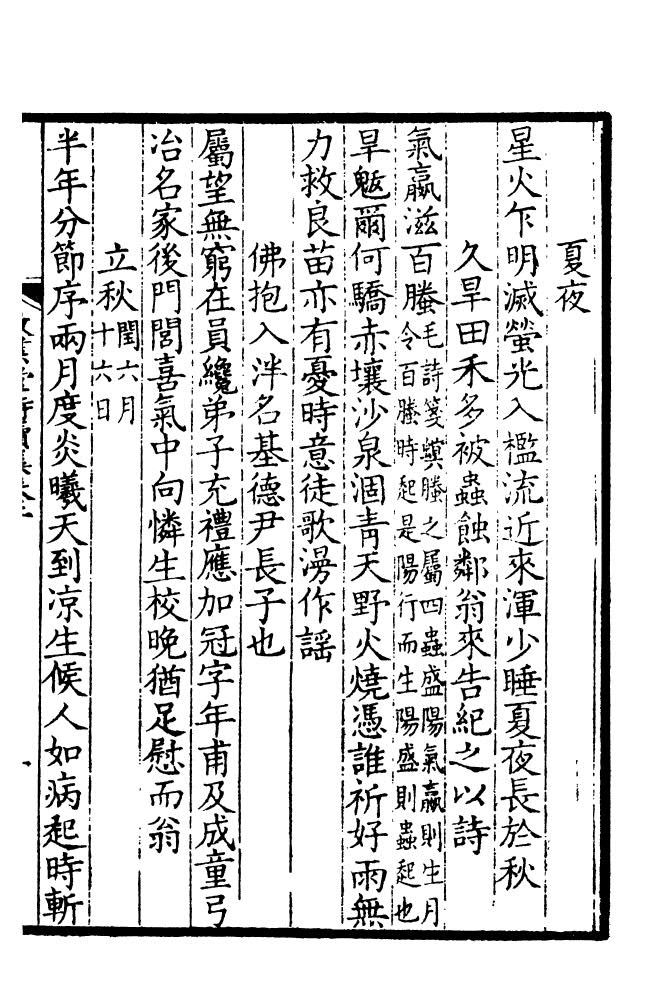 夏夜
星火乍明滅螢光入檻流近來渾少睡夏夜長於秋
久旱田禾多被蟲蝕鄰翁來告紀之以詩
氣贏滋百螣毛詩箋螟螣之屬四蟲盛陽氣贏則生月
令百螣時起是陽行而生陽盛則蟲起也
旱魃爾何驕赤壤沙泉涸青天野火燒憑誰祈好雨無
力救良苗亦有憂時意徒歌漫作謠
佛抱入泮名基德尹長子也
屬望無窮在員纔弟子充禮應加冠字年甫及成童弓
冶名家後門閭喜氣中向憐生校晚猶足慰而翁
立秋閏六月
十六日
半年分節序兩月度炎曦天到凉生候人如病起時斬